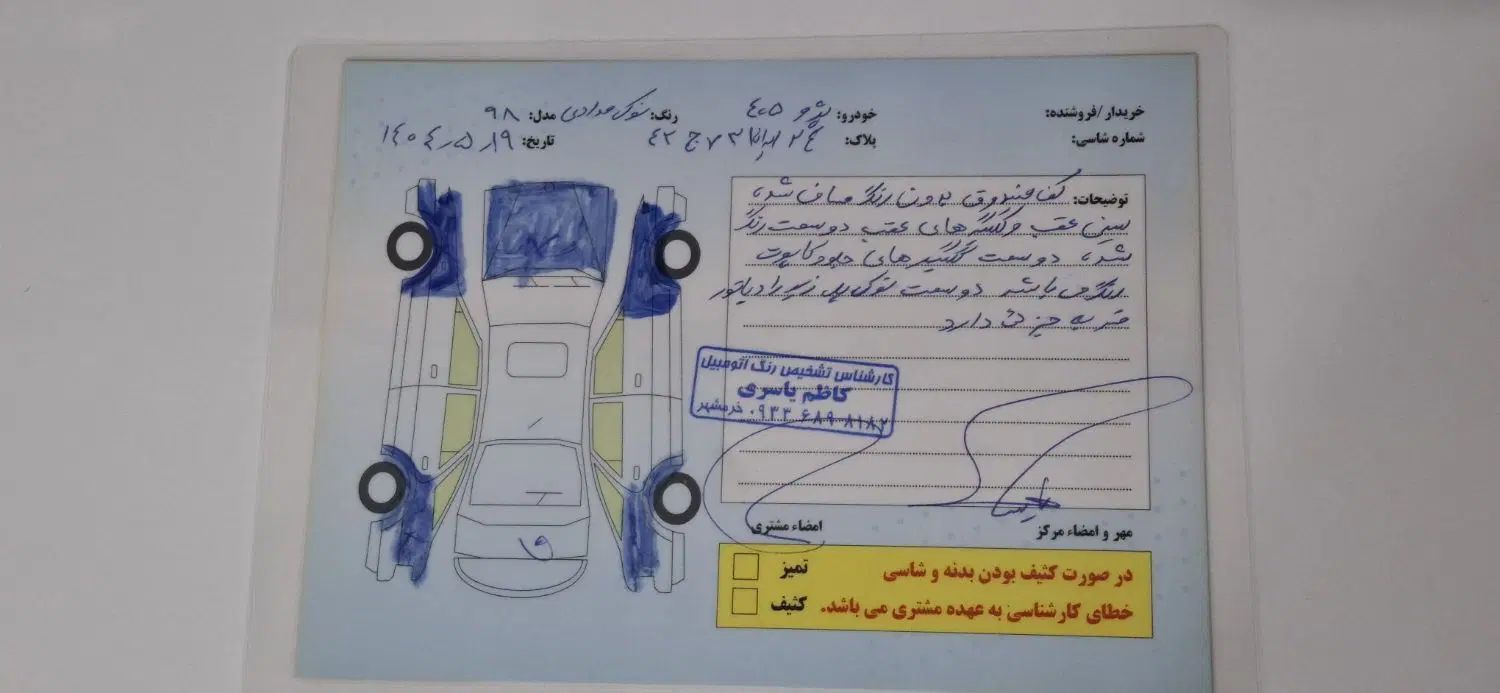 خریدار/فروشنده: خودرو: پژو ۴۰۵ رنگ: نوک مدادی مدل: ۹۸
شماره شاسی: پلاک: ۲۴ ایران ۷۳ ج ۴۲ تاریخ: ۱۴۰۴٫۵٫۱۹
توضیحات: کف صندوق بدون رنگ صاف شده
سینی عقب و گلگیرهای عقب دو سمت رنگ
شده دو سمت گلگیرهای جلو و کاپوت
رنگ می باشد دو سمت نوک پل زیر رادیاتور
ضربه جزئی دارد
کارشناس تشخیص رنگ اتومبیل
کاظم یاسری
۰۹۳۳ ۶۸۹ ۸۱۸۲ خرمشهر
مهر و امضاء مرکز
امضاء مشتری
در صورت کثیف بودن بدنه و شاسی
خطای کارشناسی به عهده مشتری می باشد.
تمیز
کثیف